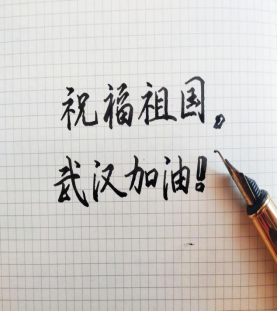 祝福祖国。
武汉加油!!